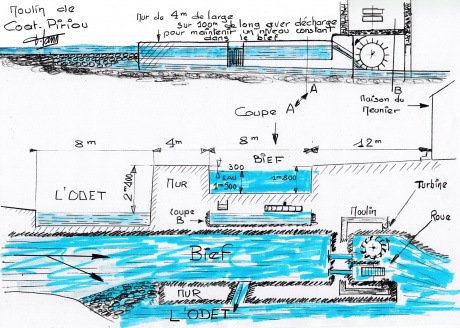 Moulin de
Coat-Piriou
Mur de 4m de large
sur 100m de long avec décharge
pour maintenir un niveau constant
dans le bief
A
B
Coupe
A
Maison du
Meunier
8m
4m
8m
12m
BIEF
300
EAU
1m500
1m800
L'ODET
2m400
MUR
Coupe
B
Turbine
Moulin
Roue
Bief
MUR
L'ODET